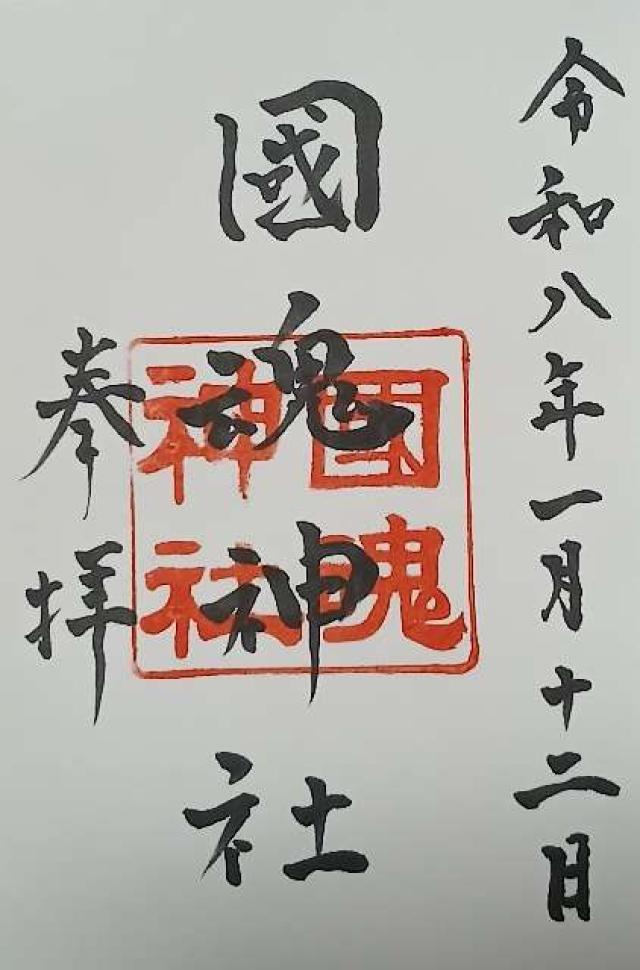 令和八年一月十二日
國魂神社
奉拝
国魂
神社